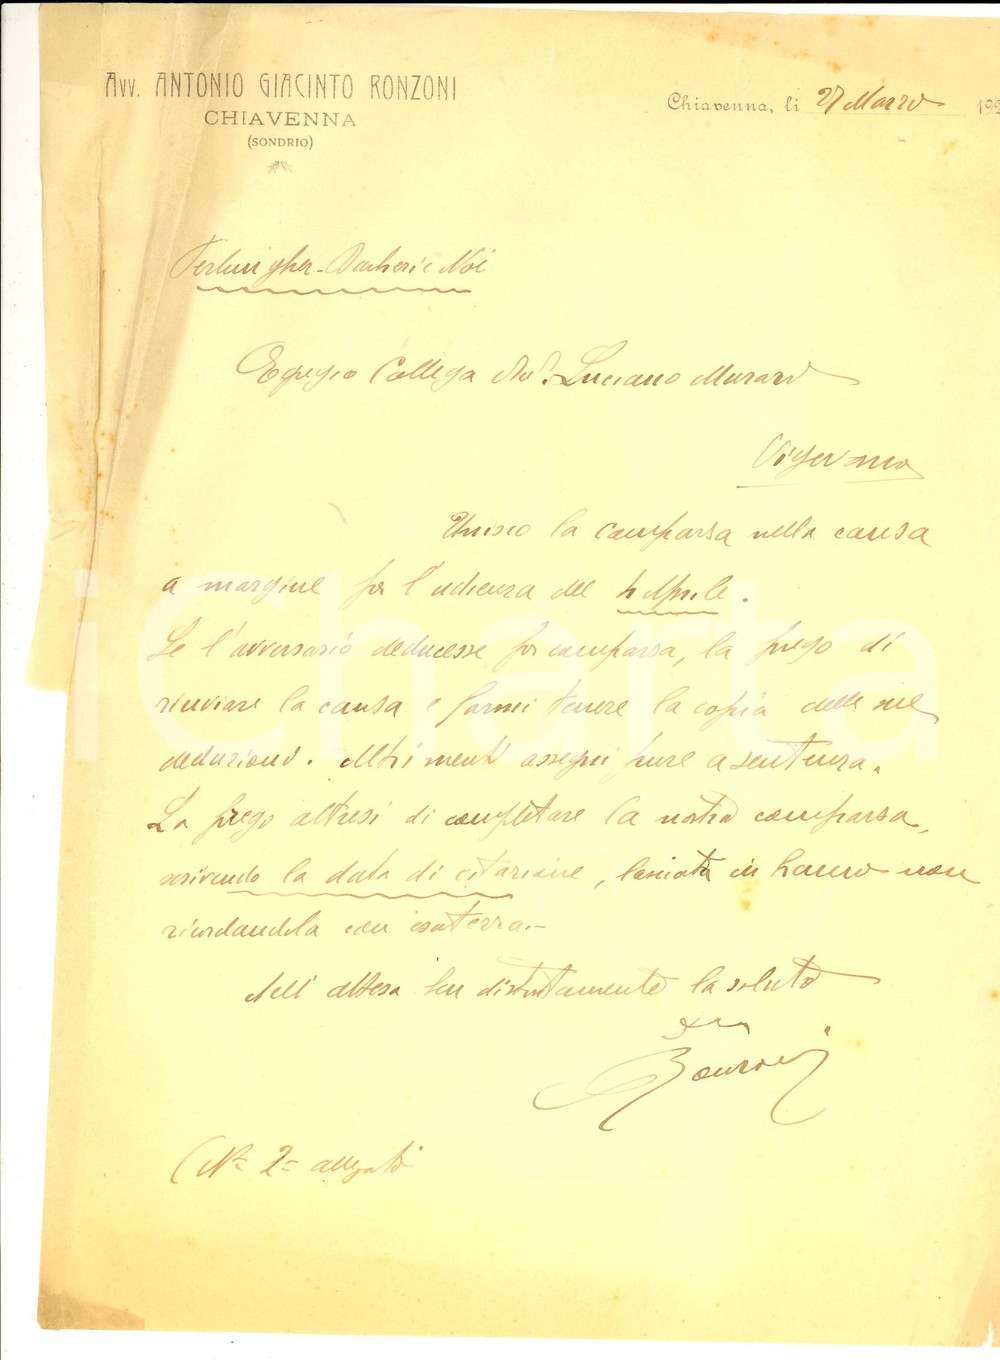 Avv. ANTONIO GIACINTO RONZONI
CHIAVENNA
(SONDRIO)
Chiavenna, li 27 Marzo 192
Egregio Collega Avv. Luciano Murari
Vigevano
Unisco la comparsa nella causa
a margine per l'udienza del Aprile.
Se l'avversario deducesse per comparsa, la prego di
rinviare la causa e farmi tenere la copia delle sue
deduzioni. Altrimenti assegni pure a sentenza.
La prego altresì di completare la nostra comparsa,
scrivendo la data di citazione, lasciata in bianco non
ricordandola con esattezza.-
Nell'attesa ben distintamente la saluto
Ronzoni
(N= 2= allegati
iCharta